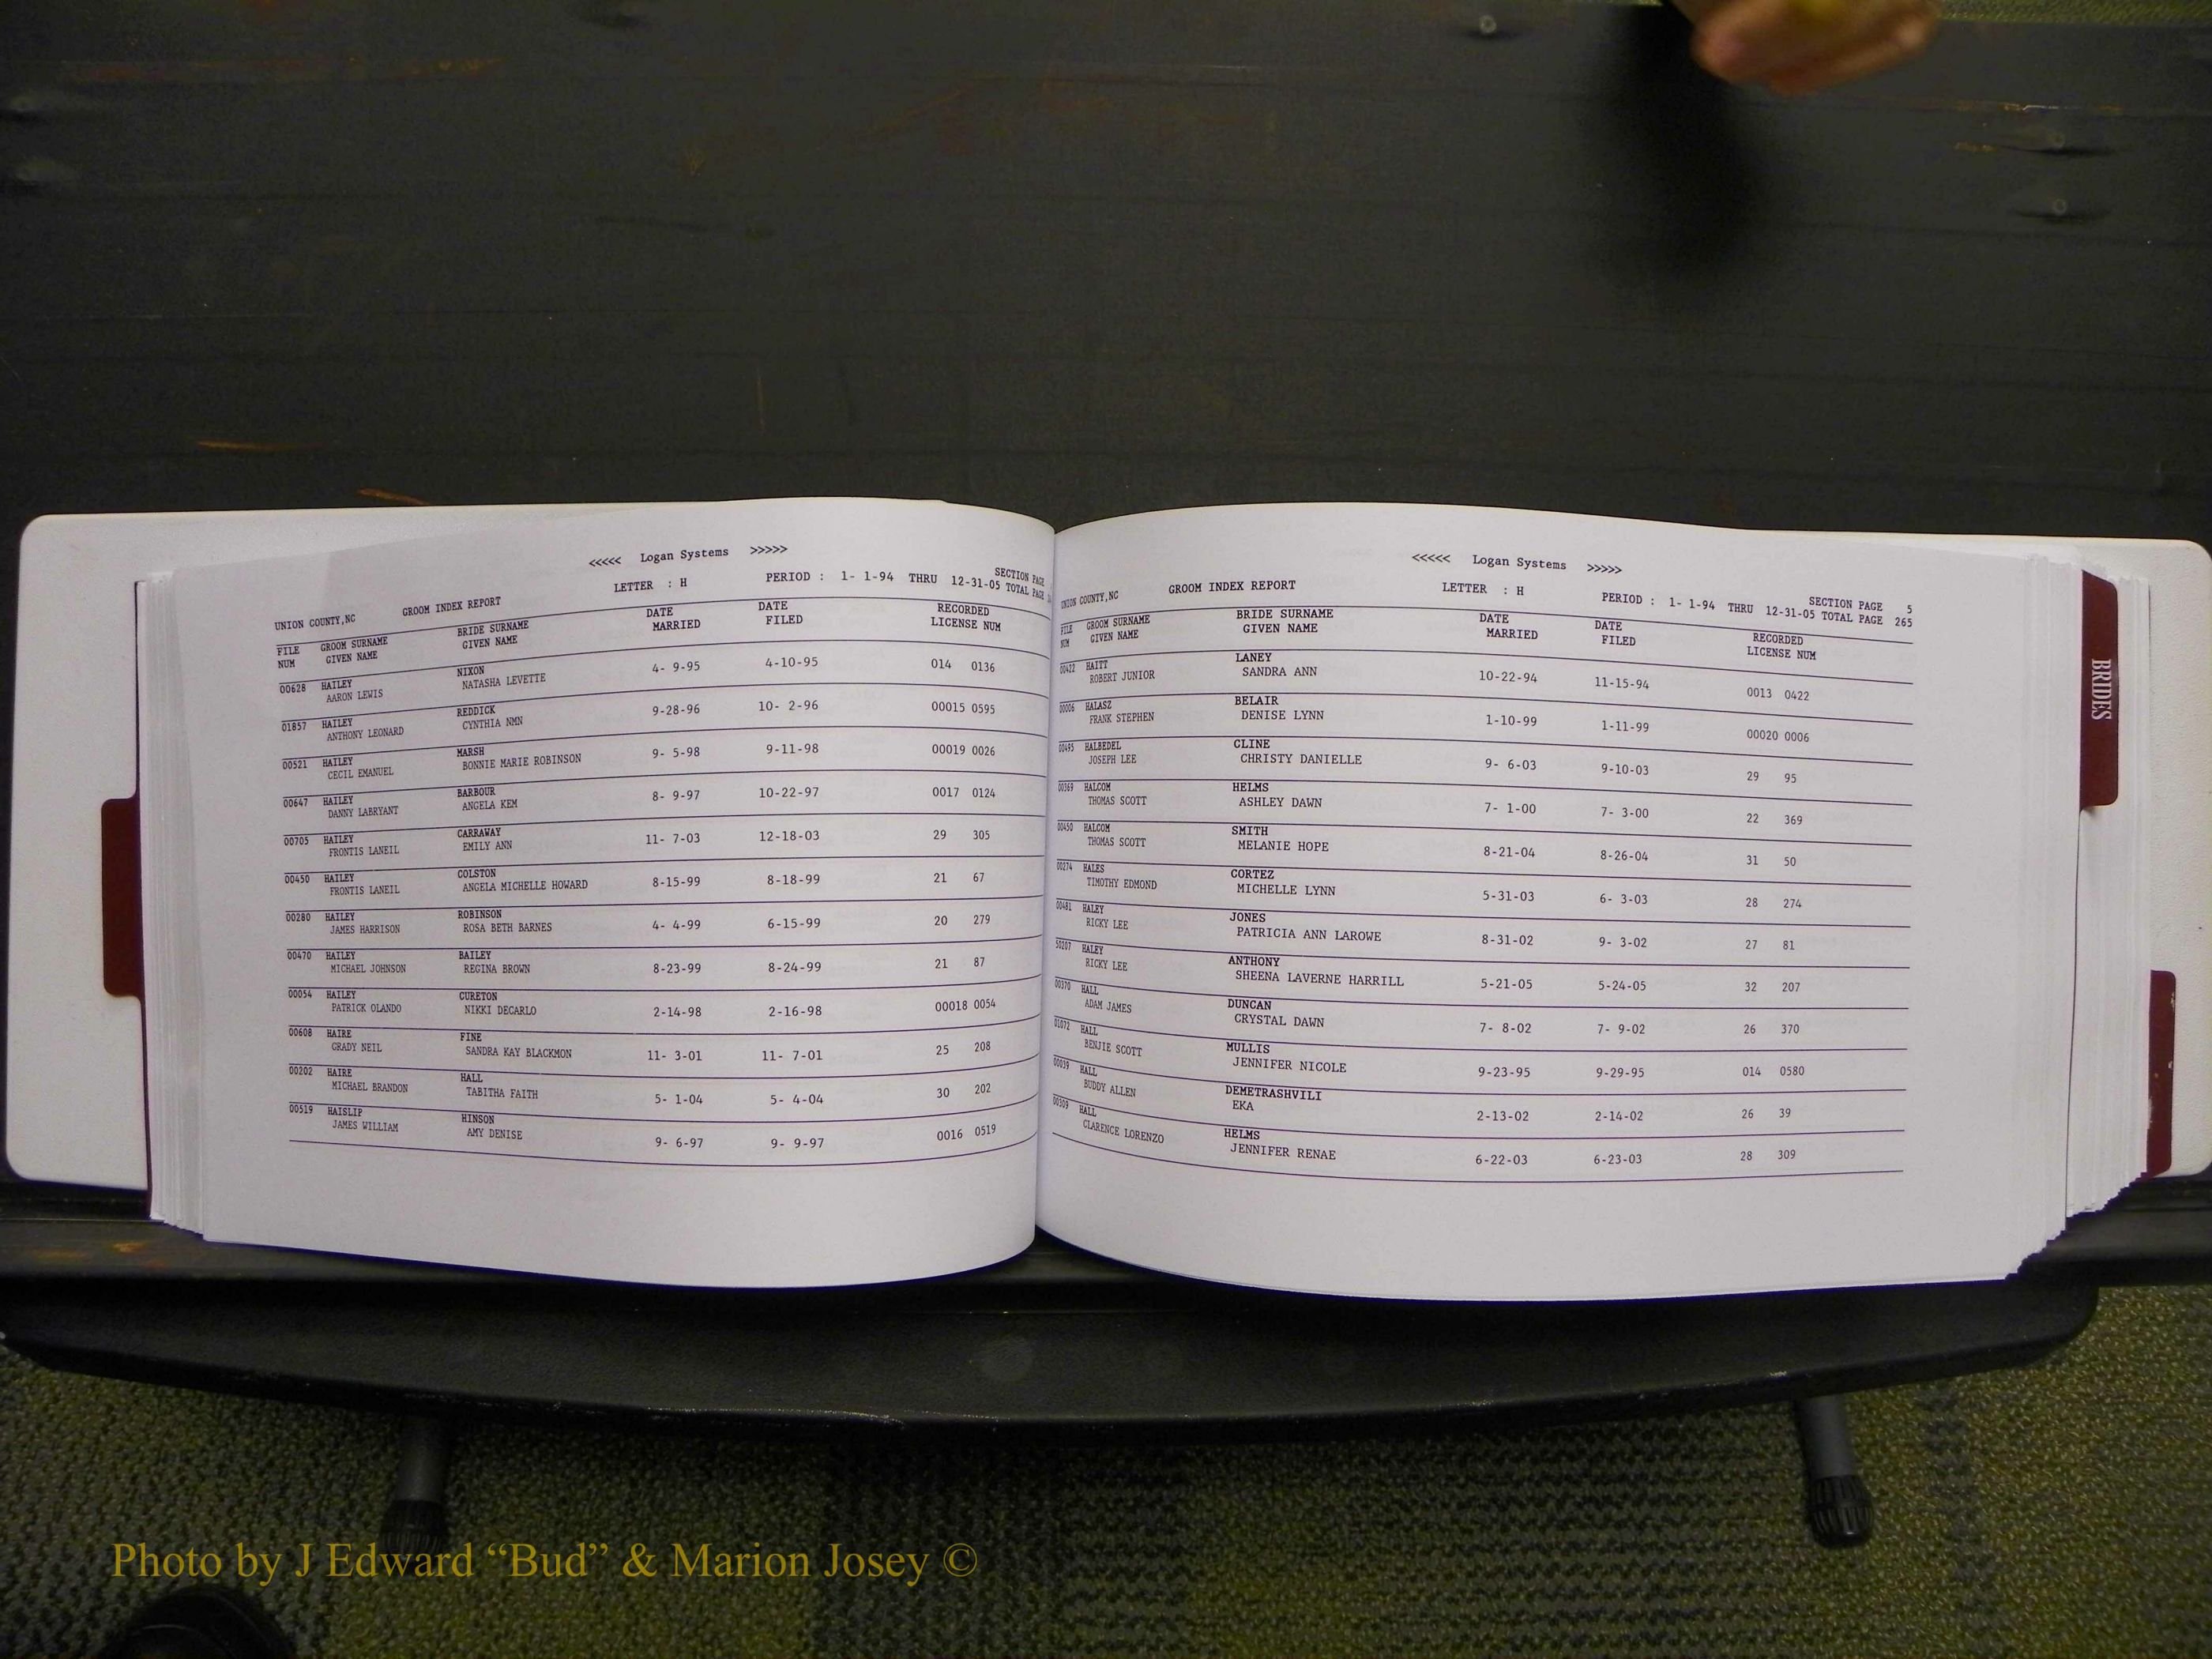 <<<<< Logan Systems >>>>>
UNION COUNTY,NC GROOM INDEX REPORT LETTER : H PERIOD : 1- 1-94 THRU 12-31-05 SECTION PAGE
TOTAL PAGE
FILE GROOM SURNAME BRIDE SURNAME DATE DATE RECORDED
NUM GIVEN NAME GIVEN NAME MARRIED FILED LICENSE NUM
00628 HAILEY NIXON 4- 9-95 4-10-95 014 0136
AARON LEWIS NATASHA LEVETTE
01857 HAILEY REDDICK 9-28-96 10- 2-96 00015 0595
ANTHONY LEONARD CYNTHIA NMN
00521 HAILEY MARSH 9- 5-98 9-11-98 00019 0026
CECIL EMANUEL BONNIE MARIE ROBINSON
00647 HAILEY BARBOUR 8- 9-97 10-22-97 0017 0124
DANNY LABRYANT ANGELA KEM
00705 HAILEY CARRAWAY 11- 7-03 12-18-03 29 305
FRONTIS LANEIL EMILY ANN
00450 HAILEY COLSTON 8-15-99 8-18-99 21 67
FRONTIS LANEIL ANGELA MICHELLE HOWARD
00280 HAILEY ROBINSON 4- 4-99 6-15-99 20 279
JAMES HARRISON ROSA BETH BARNES
00470 HAILEY BAILEY 8-23-99 8-24-99 21 87
MICHAEL JOHNSON REGINA BROWN
00054 HAILEY CURETON 2-14-98 2-16-98 00018 0054
PATRICK OLANDO NIKKI DECARLO
00608 HAIRE FINE 11- 3-01 11- 7-01 25 208
GRADY NEIL SANDRA KAY BLACKMON
00202 HAIRE HALL 5- 1-04 5- 4-04 30 202
MICHAEL BRANDON TABITHA FAITH
00519 HAISLIP HINSON 9- 6-97 9- 9-97 0016 0519
JAMES WILLIAM AMY DENISE
<<<<< Logan Systems >>>>>
UNION COUNTY,NC GROOM INDEX REPORT LETTER : H PERIOD : 1- 1-94 THRU 12-31-05 SECTION PAGE 5
TOTAL PAGE 265
FILE GROOM SURNAME BRIDE SURNAME DATE DATE RECORDED
NUM GIVEN NAME GIVEN NAME MARRIED FILED LICENSE NUM
00422 HAITT LANEY 10-22-94 11-15-94 0013 0422
ROBERT JUNIOR SANDRA ANN
00006 HALASZ BELAIR 1-10-99 1-11-99 00020 0006
FRANK STEPHEN DENISE LYNN
00495 HALBEDEL CLINE 9- 6-03 9-10-03 29 95
JOSEPH LEE CHRISTY DANIELLE
00369 HALCOM HELMS 7- 1-00 7- 3-00 22 369
THOMAS SCOTT ASHLEY DAWN
00450 HALCOM SMITH 8-21-04 8-26-04 31 50
THOMAS SCOTT MELANIE HOPE
00274 HALES CORTEZ 5-31-03 6- 3-03 28 274
TIMOTHY EDMOND MICHELLE LYNN
00481 HALEY JONES 8-31-02 9- 3-02 27 81
RICKY LEE PATRICIA ANN LAROWE
50207 HALEY ANTHONY 5-21-05 5-24-05 32 207
RICKY LEE SHEENA LAVERNE HARRILL
00370 HALL DUNCAN 7- 8-02 7- 9-02 26 370
ADAM JAMES CRYSTAL DAWN
01072 HALL MULLIS 9-23-95 9-29-95 014 0580
BENJIE SCOTT JENNIFER NICOLE
00039 HALL DEMETRASHVILI 2-13-02 2-14-02 26 39
BUDDY ALLEN EKA
00309 HALL HELMS 6-22-03 6-23-03 28 309
CLARENCE LORENZO JENNIFER RENAE
BRIDES
Photo by J Edward “Bud” & Marion Josey ©